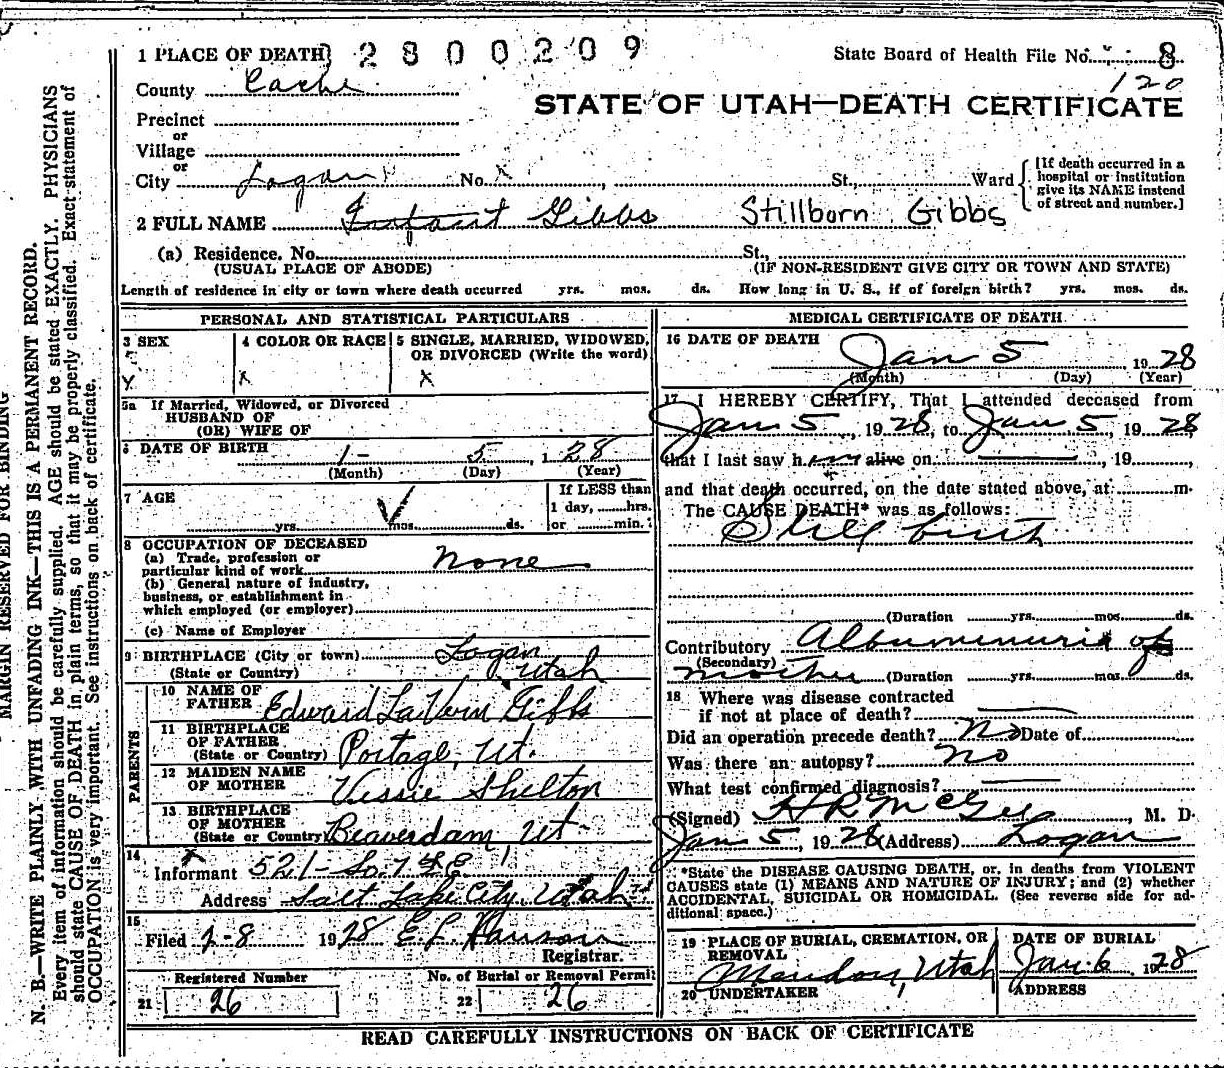 1 PLACE OF DEATH 2800209
State Board of Health File No. 8
120
County Cache
STATE OF UTAH—DEATH CERTIFICATE
Precinct
or
Village
or
City Logan No. x St., Ward
[If death occurred in a
hospital or institution
give its NAME instead
of street and number.]
2 FULL NAME Infant Gibbs Stillborn Gibbs
(a) Residence. No. St.,
(USUAL PLACE OF ABODE) (IF NON-RESIDENT GIVE CITY OR TOWN AND STATE)
Length of residence in city or town where death occurred yrs. mos. ds. How long in U. S., if of foreign birth? yrs. mos. ds.
PERSONAL AND STATISTICAL PARTICULARS
3 SEX 4 COLOR OR RACE 5 SINGLE, MARRIED, WIDOWED,
OR DIVORCED (Write the word)
x x
5a If Married, Widowed, or Divorced
HUSBAND OF
(OR) WIFE OF
6 DATE OF BIRTH 1- 5, 1 28
(Month) (Day) (Year)
7 AGE If LESS than
1 day, hrs.
yrs. mos. ds. or min.?
8 OCCUPATION OF DECEASED
(a) Trade, profession or
particular kind of work None
(b) General nature of industry,
business, or establishment in
which employed (or employer)
(c) Name of Employer
9 BIRTHPLACE (City or town) Logan
(State or Country) Utah
PARENTS
10 NAME OF
FATHER Edward LaVorn Gibbs
11 BIRTHPLACE
OF FATHER
(State or Country) Portage, Ut.
12 MAIDEN NAME
OF MOTHER Vessie Shelton
13 BIRTHPLACE
OF MOTHER
(State or Country) Beaverdam, Ut-
14
Informant x 521- So. 7th E
Address Salt Lake City, Utah
15
Filed 1-8 1928 E L Hanson
Registrar.
Registered Number No. of Burial or Removal Permit
21 26 22 26
MEDICAL CERTIFICATE OF DEATH
16 DATE OF DEATH
Jan 5 1928
(Month) (Day) (Year)
17 I HEREBY CERTIFY, That I attended deceased from
Jan 5, 1928, to Jan. 5, 1928,
that I last saw h alive on, 19
and that death occurred, on the date stated above, at m.
The CAUSE DEATH* was as follows:
Still birth
(Duration yrs. mos. ds.
Contributory Albuminuria of
(Secondary)
mother (Duration yrs. mos. ds.
18 Where was disease contracted
if not at place of death?
Did an operation precede death? No Date of
Was there an autopsy? No
What test confirmed diagnosis?
(Signed) H R McGee, M. D.
Jan 5, 1928 (Address) Logan
*State the DISEASE CAUSING DEATH, or, in deaths from VIOLENT
CAUSES state (1) MEANS AND NATURE OF INJURY; and (2) whether
ACCIDENTAL, SUICIDAL OR HOMICIDAL. (See reverse side for ad-
ditional space.)
19 PLACE OF BURIAL, CREMATION, OR
REMOVAL
Mendon, Utah
DATE OF BURIAL
Jan. 6 1928
20 UNDERTAKER ADDRESS
READ CAREFULLY INSTRUCTIONS ON BACK OF CERTIFICATE
MARGIN RESERVED FOR BINDING
N. B.—WRITE PLAINLY WITH UNFADING INK—THIS IS A PERMANENT RECORD.
Every item of information should be carefully supplied. AGE should be stated EXACTLY. PHYSICIANS
should state CAUSE OF DEATH in plain terms, so that it may be properly classified. Exact statement of
OCCUPATION is very important. See instructions on back of certificate.